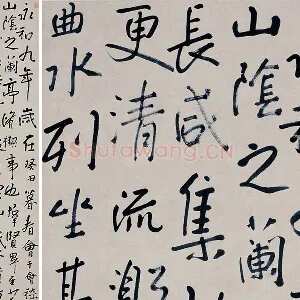 山陰之蘭
長咸集
更清流激
曲水列坐其
永和九年歲在癸丑暮春會于會稽
山陰之蘭亭脩禊事也羣賢畢至少
Shufawang.CN